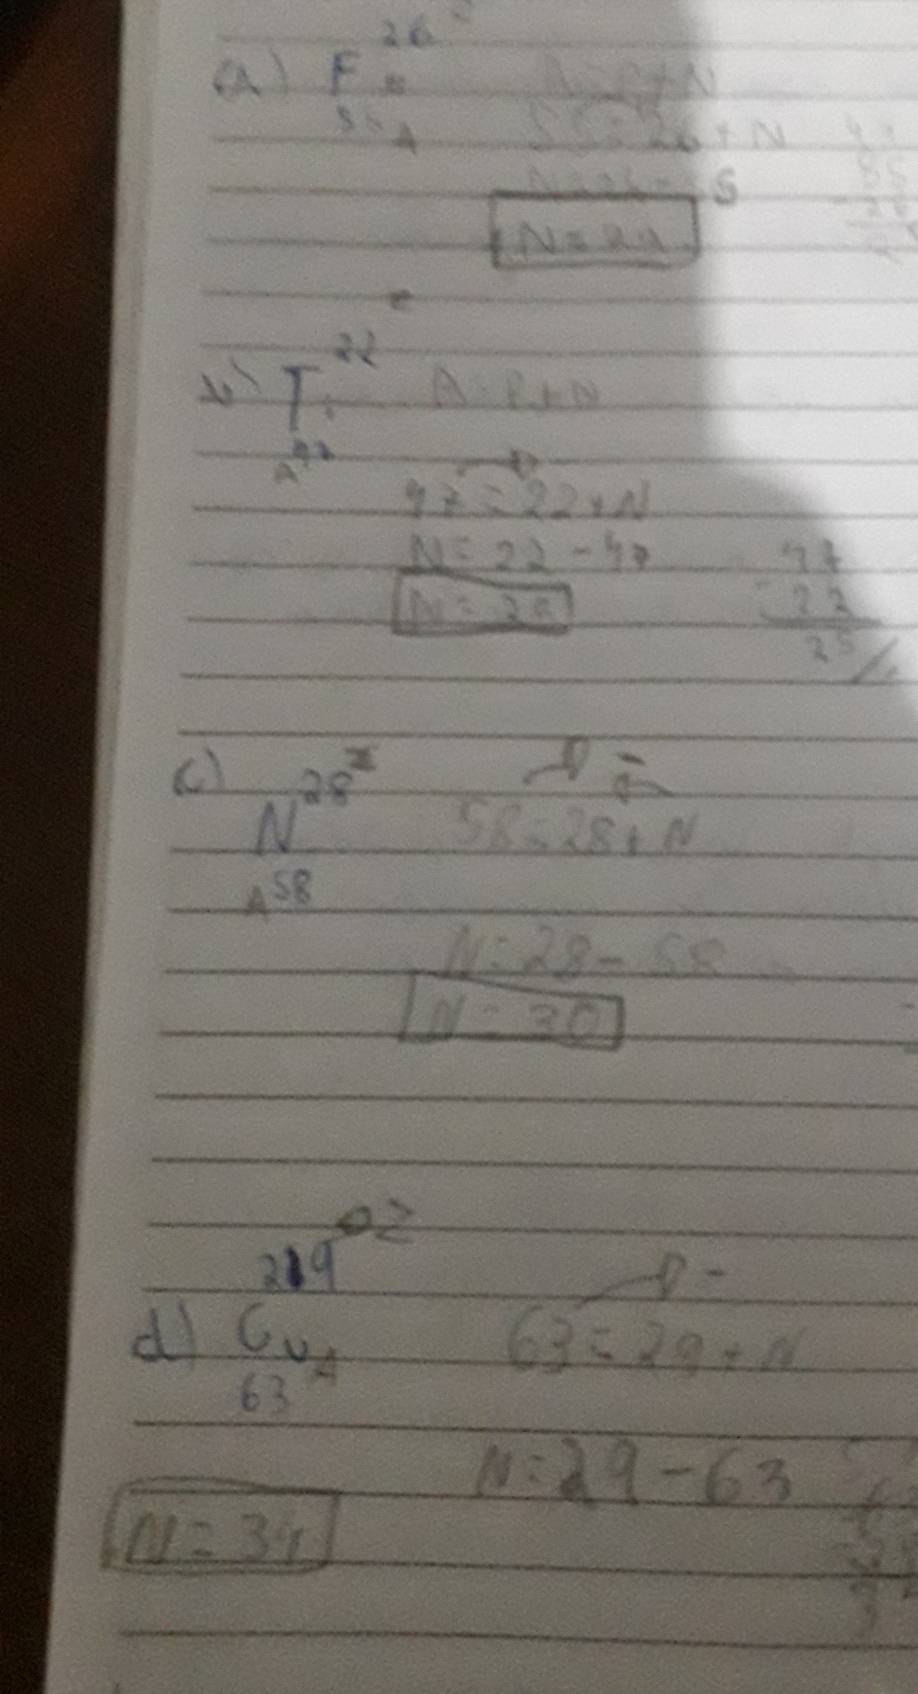 26
(a) Fe A=P+N
55 A 55=26+N
N=29
22
b) Ti A=P+N
A 47
47=22+N
N=22-47 47
N=25 -22
25
c) 28 z
N 58=28+N
A 58
N=28-58
N=30
z
29
d) Cu A 63=29+N
63
N=29-63
N=34